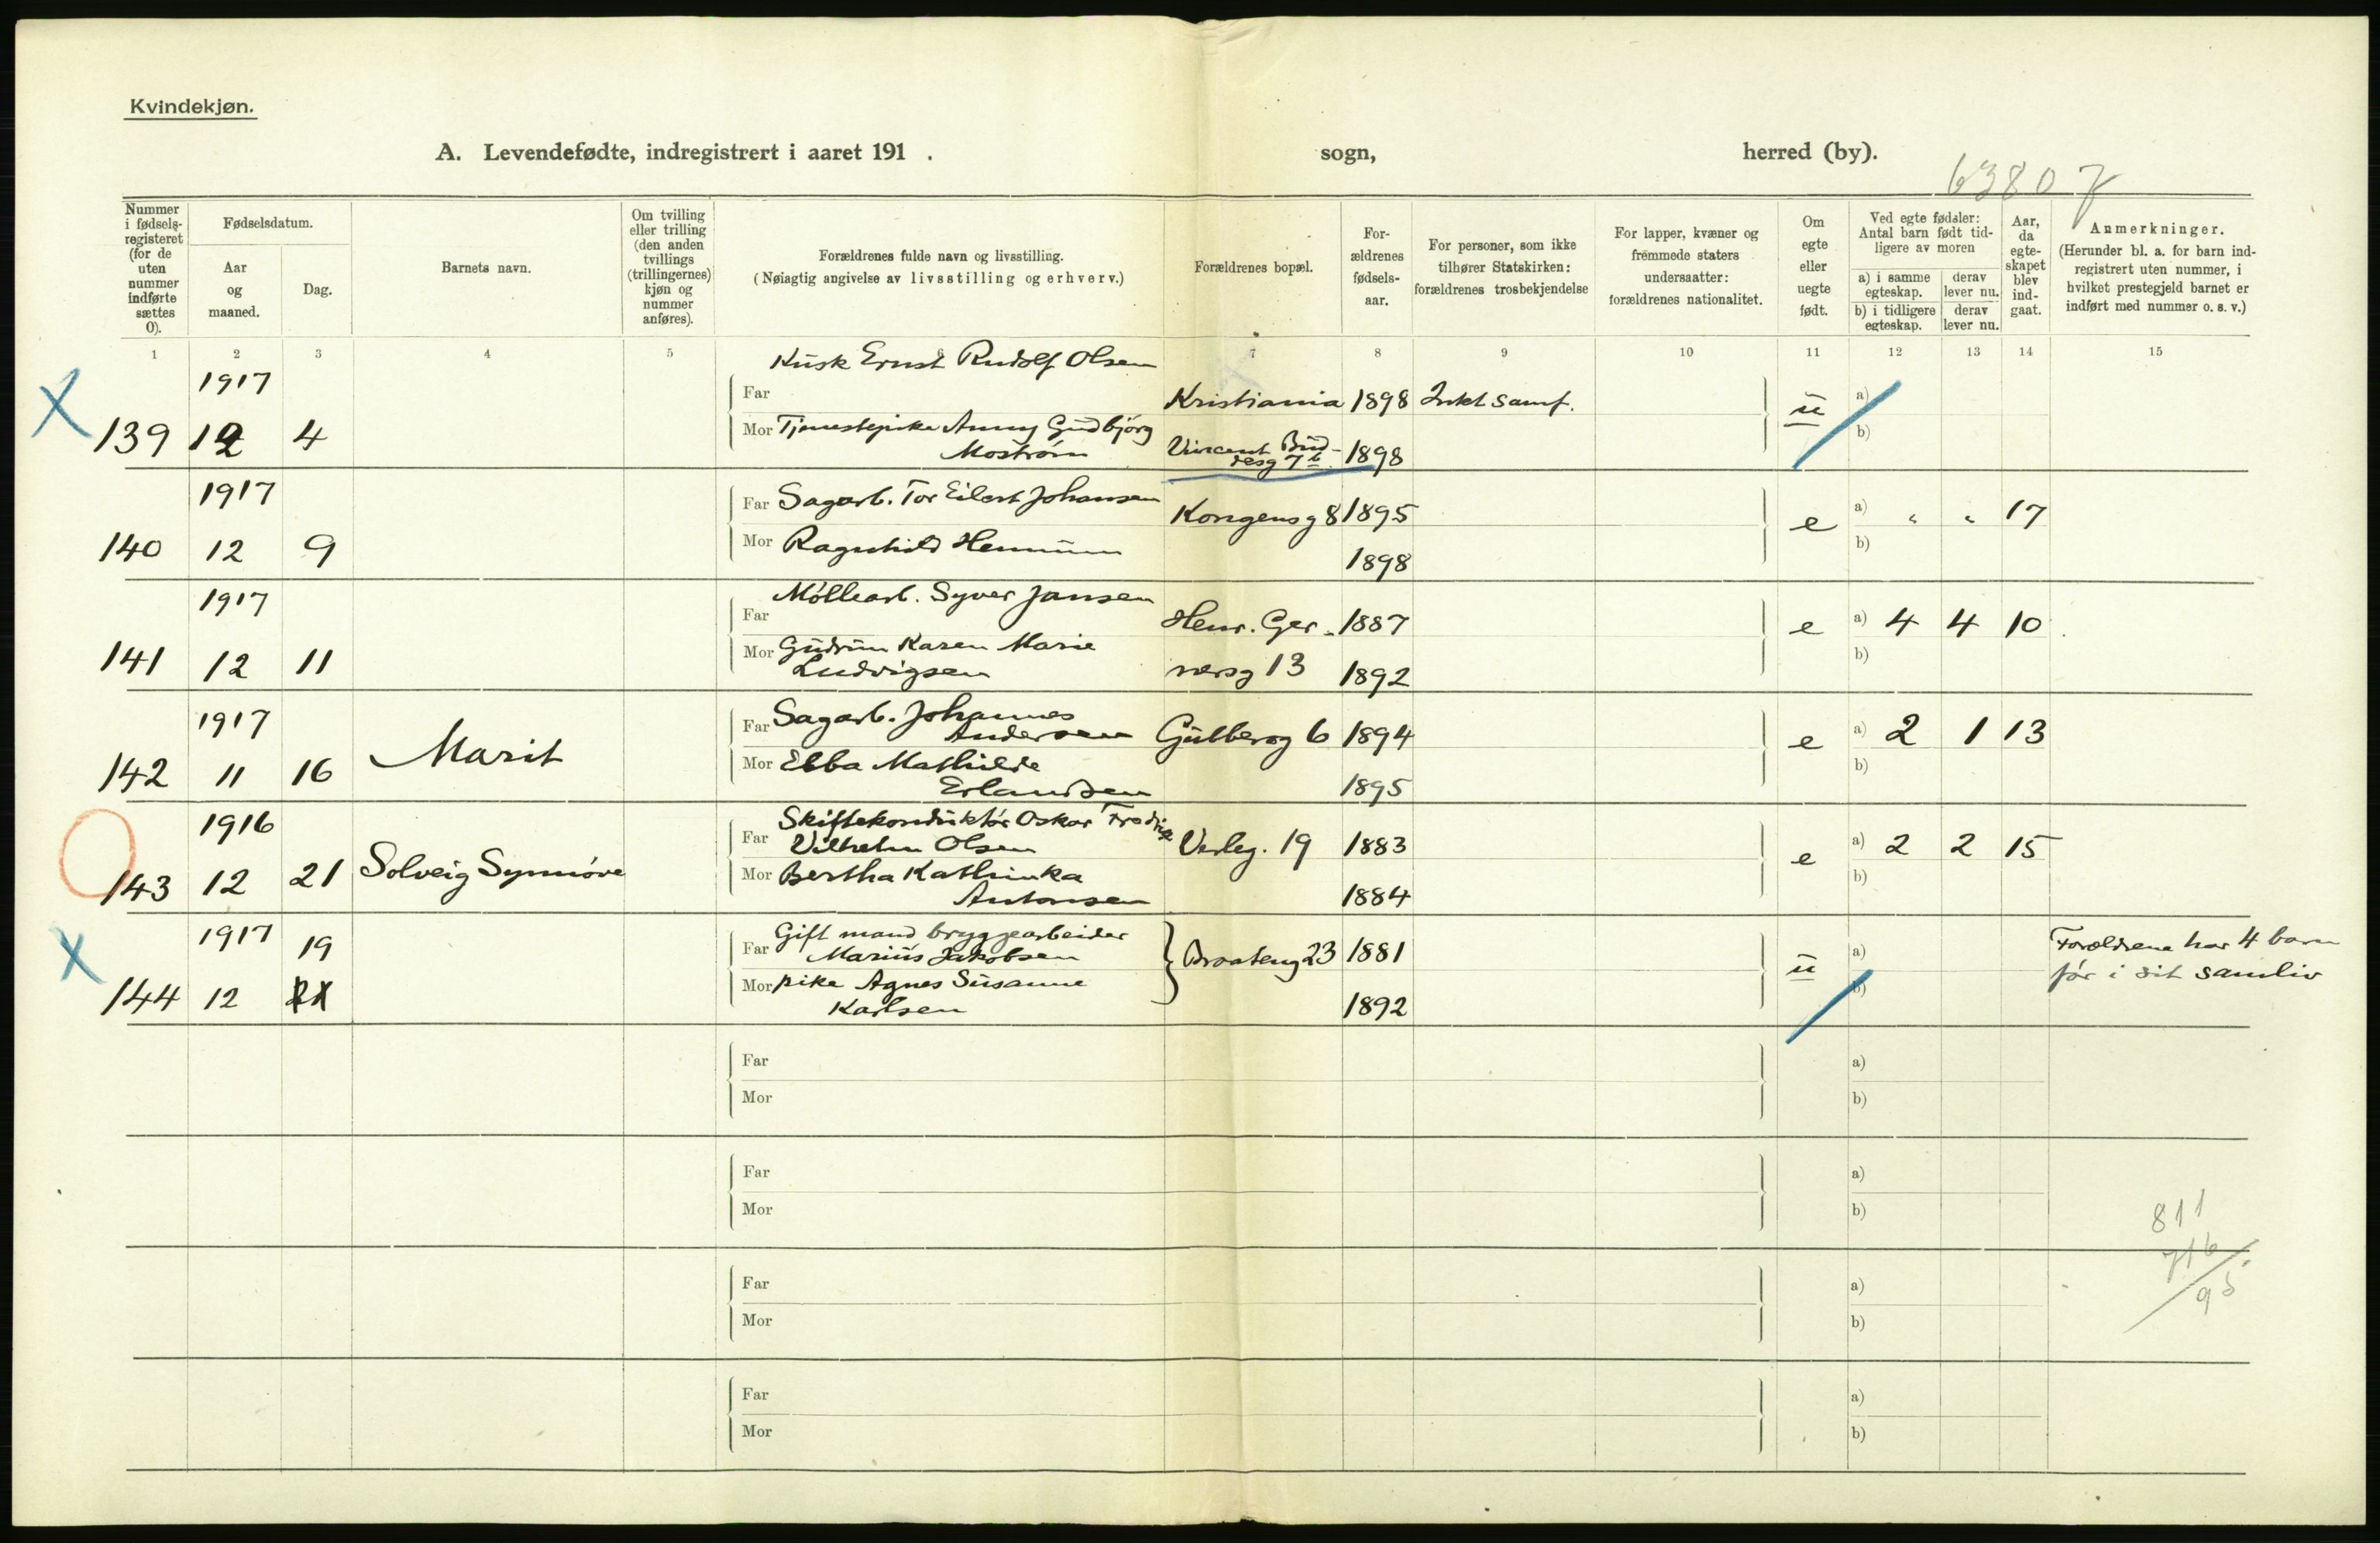 Kvindekjøn.
A. Levendefødte, indregistrert i aaret 191 . sogn, herred (by).
6380 7
Nummer i fødsels-registeret (for de uten nummer indførte sættes 0).
Fødselsdatum.
Aar og maaned.
Dag.
Barnets navn.
Om tvilling eller trilling (den anden tvillings (trillingernes) kjøn og nummer anføres).
Forældrenes fulde navn og livsstilling.
(Nøiagtig angivelse av livsstilling og erhverv.)
Forældrenes bopæl.
For-ældrenes fødsels-aar.
For personer, som ikke tilhører Statskirken: forældrenes trosbekjendelse
For lapper, kvæner og fremmede staters undersaatter: forældrenes nationalitet.
Om egte eller uegte født.
Ved egte fødsler: Antal barn født tid-ligere av moren
a) i samme egteskap.
derav lever nu.
b) i tidligere egteskap.
derav lever nu.
Aar, da egte-skapet blev ind-gaat.
Anmerkninger.
(Herunder bl. a. for barn ind-registrert uten nummer, i hvilket prestegjeld barnet er indført med nummer o. s. v.)
1 2 3 4 5 6 7 8 9 10 11 12 13 14 15
1917 Kusk Ernst Rudolf Olsen
Far Kristiania 1898 Inkt samf. u a)
139 12 4 Mor Tjenestepike Anny Gudbjörg
Moström Vincent Bud-
resg 7 b 1898 b)
1917 Far Sagarb. Tor Eilert Johansen Kongensg 8 1895 e a) " " 17
140 12 9 Mor Ragnhild Hennum 1898 b)
1917 Far Möllearb. Syver Jansen Henr. Ger- 1887 e a) 4 4 10
141 12 11 Mor Gudrun Karen Marie
Ludvigsen nersg 13 1892 b)
1917 Far Sagarb. Johannes
Andersen Gulbergg 6 1894 e a) 2 1 13
142 11 16 Marit Mor Ebba Mathilde
Erlandsen 1895 b)
1916 Far Skiftekonduktör Oskar Fredrik
Vilhelm Olsen Verleg. 19 1883 e a) 2 2 15
143 12 21 Solveig Synnöve Mor Bertha Kathinka
Antonsen 1884 b)
1917 19 Far Gift mand bryggearbeider
Marius Jakobsen Braateng 23 1881 u a) Forældrene har 4 barn
144 12 Mor pike Agnes Susanne för i sit samliv
Karlsen 1892 b)
Far a)
Mor b)
Far a)
Mor b)
811
716
95
Far a)
Mor b)
Far a)
Mor b)